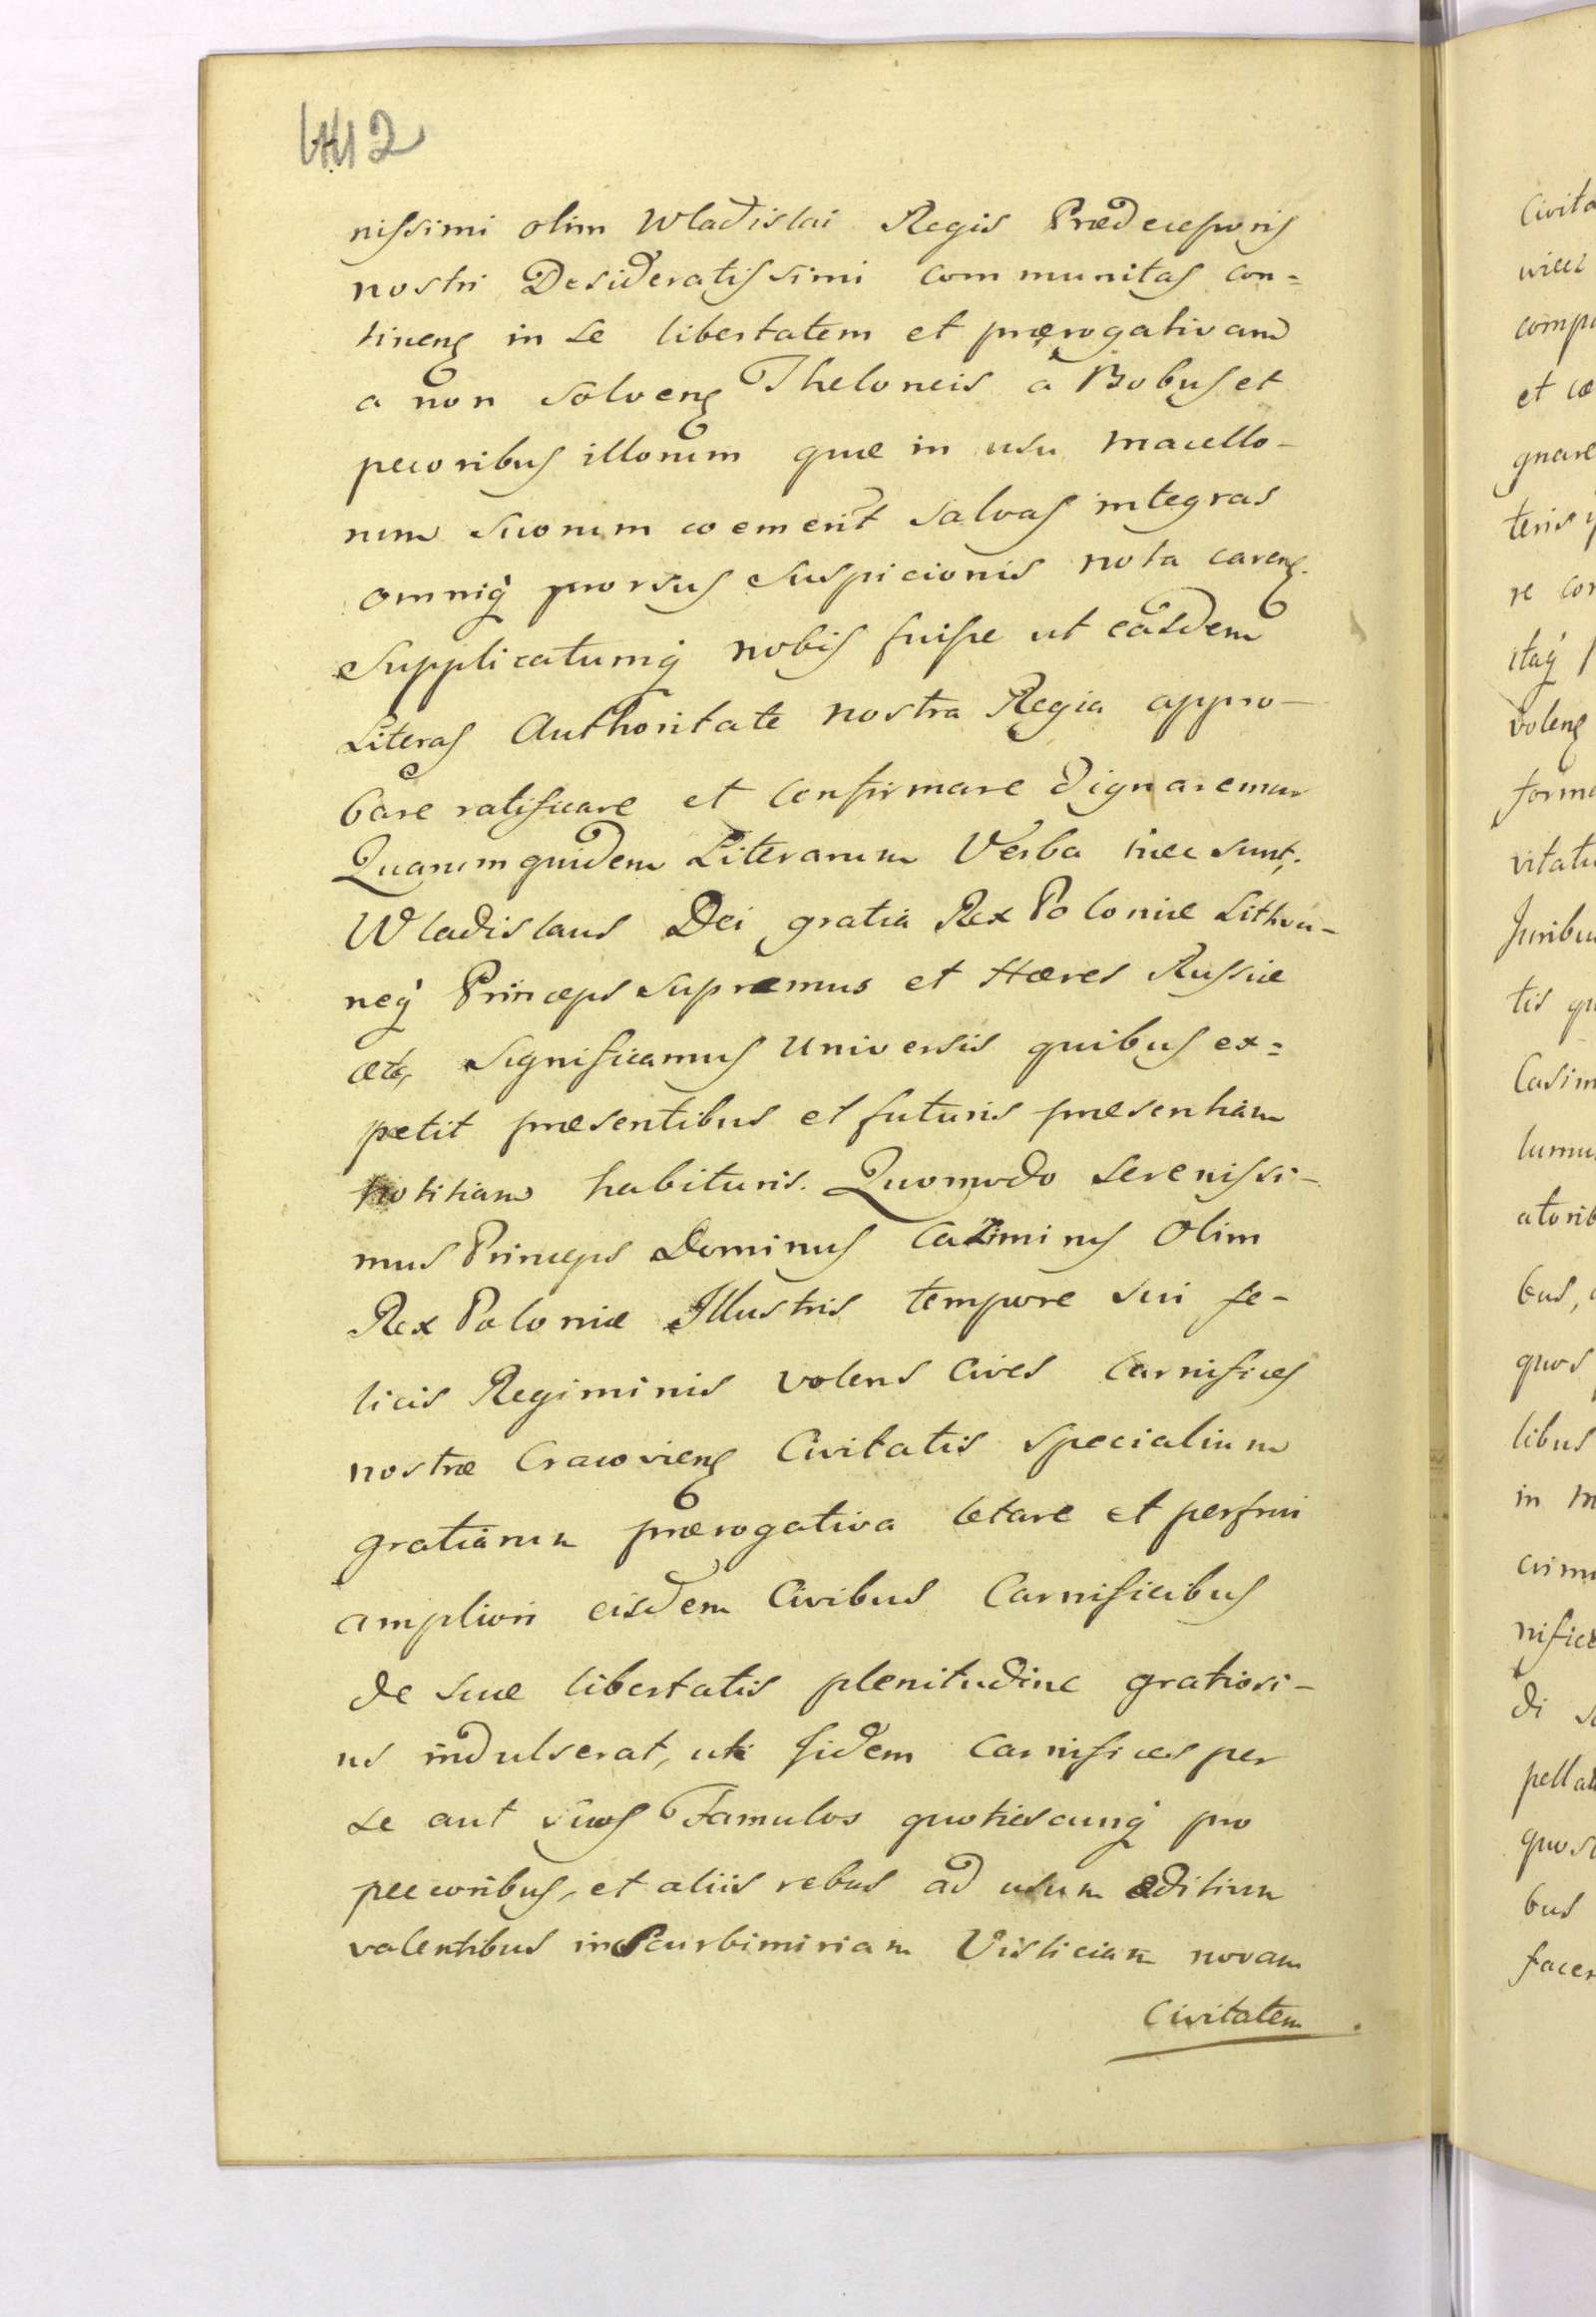 nissimi olim Wladislai Regis Prædecessoris
nostri Desideratissimi communitas con=
tineng in se libertatem et prærogativam
a non solveng Theloneis a Bobus et
pecoribus illorum quæ in usu macello-
rum suorum coemerit salvas integras
omniq prorsus suspicionis nota careng.
Supplicatumq nobis fuisse ut easdem
Literas Authoritate nostra Regia appro-
bare ratificare et confirmare dignaremur
Quarum quidem Literarum Verba hæc sunt.
Wladislaus Dei gratia Rex Poloniæ Lithva-
neq Princeps Supræmus et Hæres Russiæ
ætc, significamus Universis quibus ex=
petit præsentibus et futuris præsentiam
notitiam habituris. Quomodo Serenissi-
mus Princeps Dominus Cazimirus Olim
Rex Poloniæ Illustris tempore sui fe-
licis Regiminis volens Cives Carnifices
nostræ Cracovieng Civitatis specialium
gratiarum prærogativa letare et perfrui
ampliori eisdem Civibus Carnificibus
de suæ libertatis plenitudine gratiosi-
us indulserat, uti fidem Carnifices per
se aut suos Famulos quotiescunq pro
peccoribus, et aliis rebus ad usum æditium
valentibus in Scurbimiriam Visliciam novam
Civitatem
civita
compo
et cæ
gnare
teris
re con
itaq
voleng
forma
vitatu
Juribu
tis qu
Casim
lumu
atorib
bus,
quos
libus
in m
nifice
di
pella
bus
facer